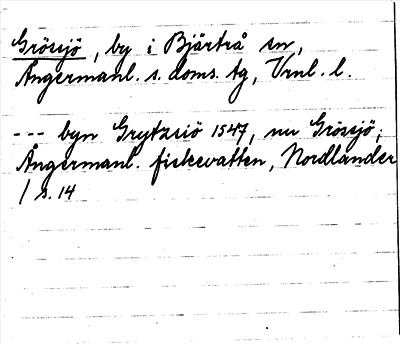 Grössjö, by i Bjärtrå sn,
Ångermanl. s. doms. tg, Vrnl. l.
--- byn Grytzsiö 1547, nu Grössjö;
Ångermanl. fiskevatten, Nordlander
/ s. 14